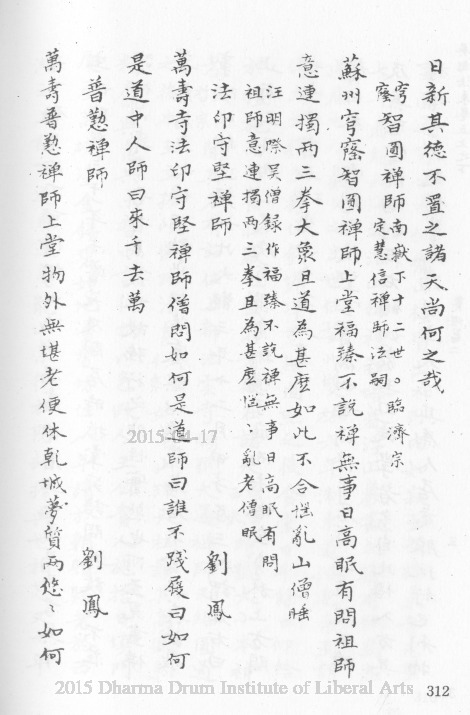 日新其德不置之諸天尚何之哉
穹窿智圓禪師南嶽下十二世。臨濟宗
定慧信禪師法嗣
蘇州穹窿智圓禪師上堂福臻不說禪無事日高眠有問祖師
意連擉兩三拳大衆且道為甚麼如此不合惱亂山僧睡
汪明際吴僧録作福臻不說禪無事日高眠有問
祖師意連擉兩三拳且為甚麼恼亂老僧眠
法印守堅禪師 劉鳳
萬壽寺法印守堅禪師僧問如何是道師曰誰不踐履曰如何
是道中人師曰來千去萬
普懃禪師 劉鳳
萬壽普懃禪師上堂物外無堪老便休乾城夢質兩悠〻如何
312
2015-04-17
2015 Dharma Drum Institute of Liberal Arts